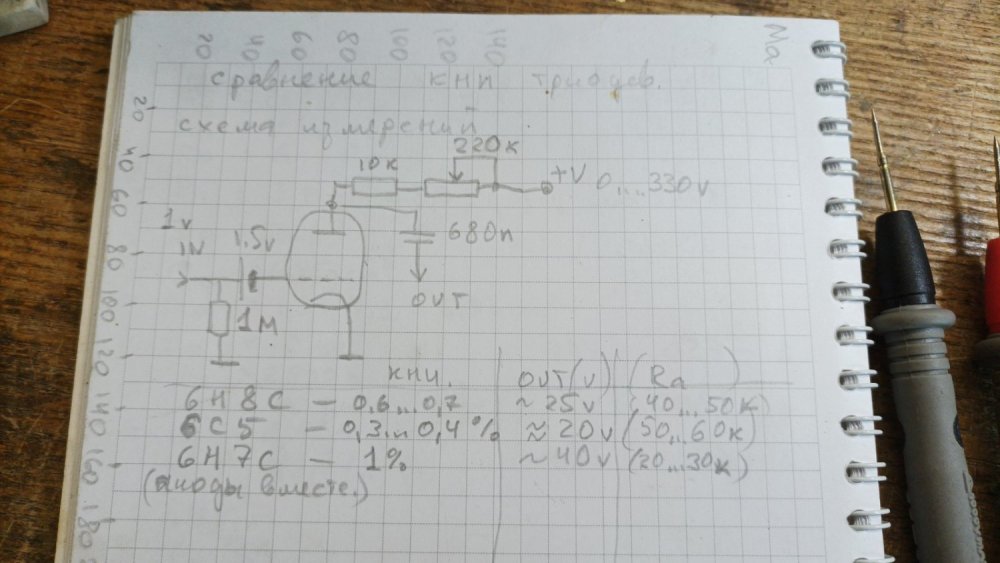 20 40 60 80 100 120 140 Ma
сравнение КНИ триодов.
20
схема измерений
220к
40
10к
+V 0....330v
60
1v
IN
1.5v
680п
80
100
OUT
1м
120
КНИ. OUT(v) (Ra )
140
6Н8С - 0,6...0,7 ~25v (40...50к)
6С5 - 0,3...0,4% ≈20v (50...60к)
6Н7С - 1% ~40v (20...30к)
160
(аноды вместе.)
180